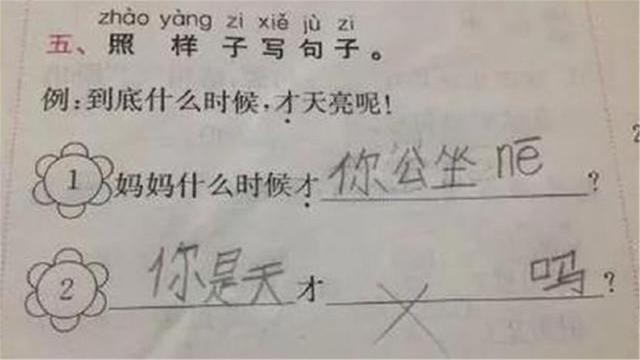 zhào yàng zi xiě jù zi
五、照 样 子 写 句 子。
例:到底什么时候,才天亮呢!
1 妈妈什么时候才 你公坐 nē ?
2 你是天 才 吗 ?